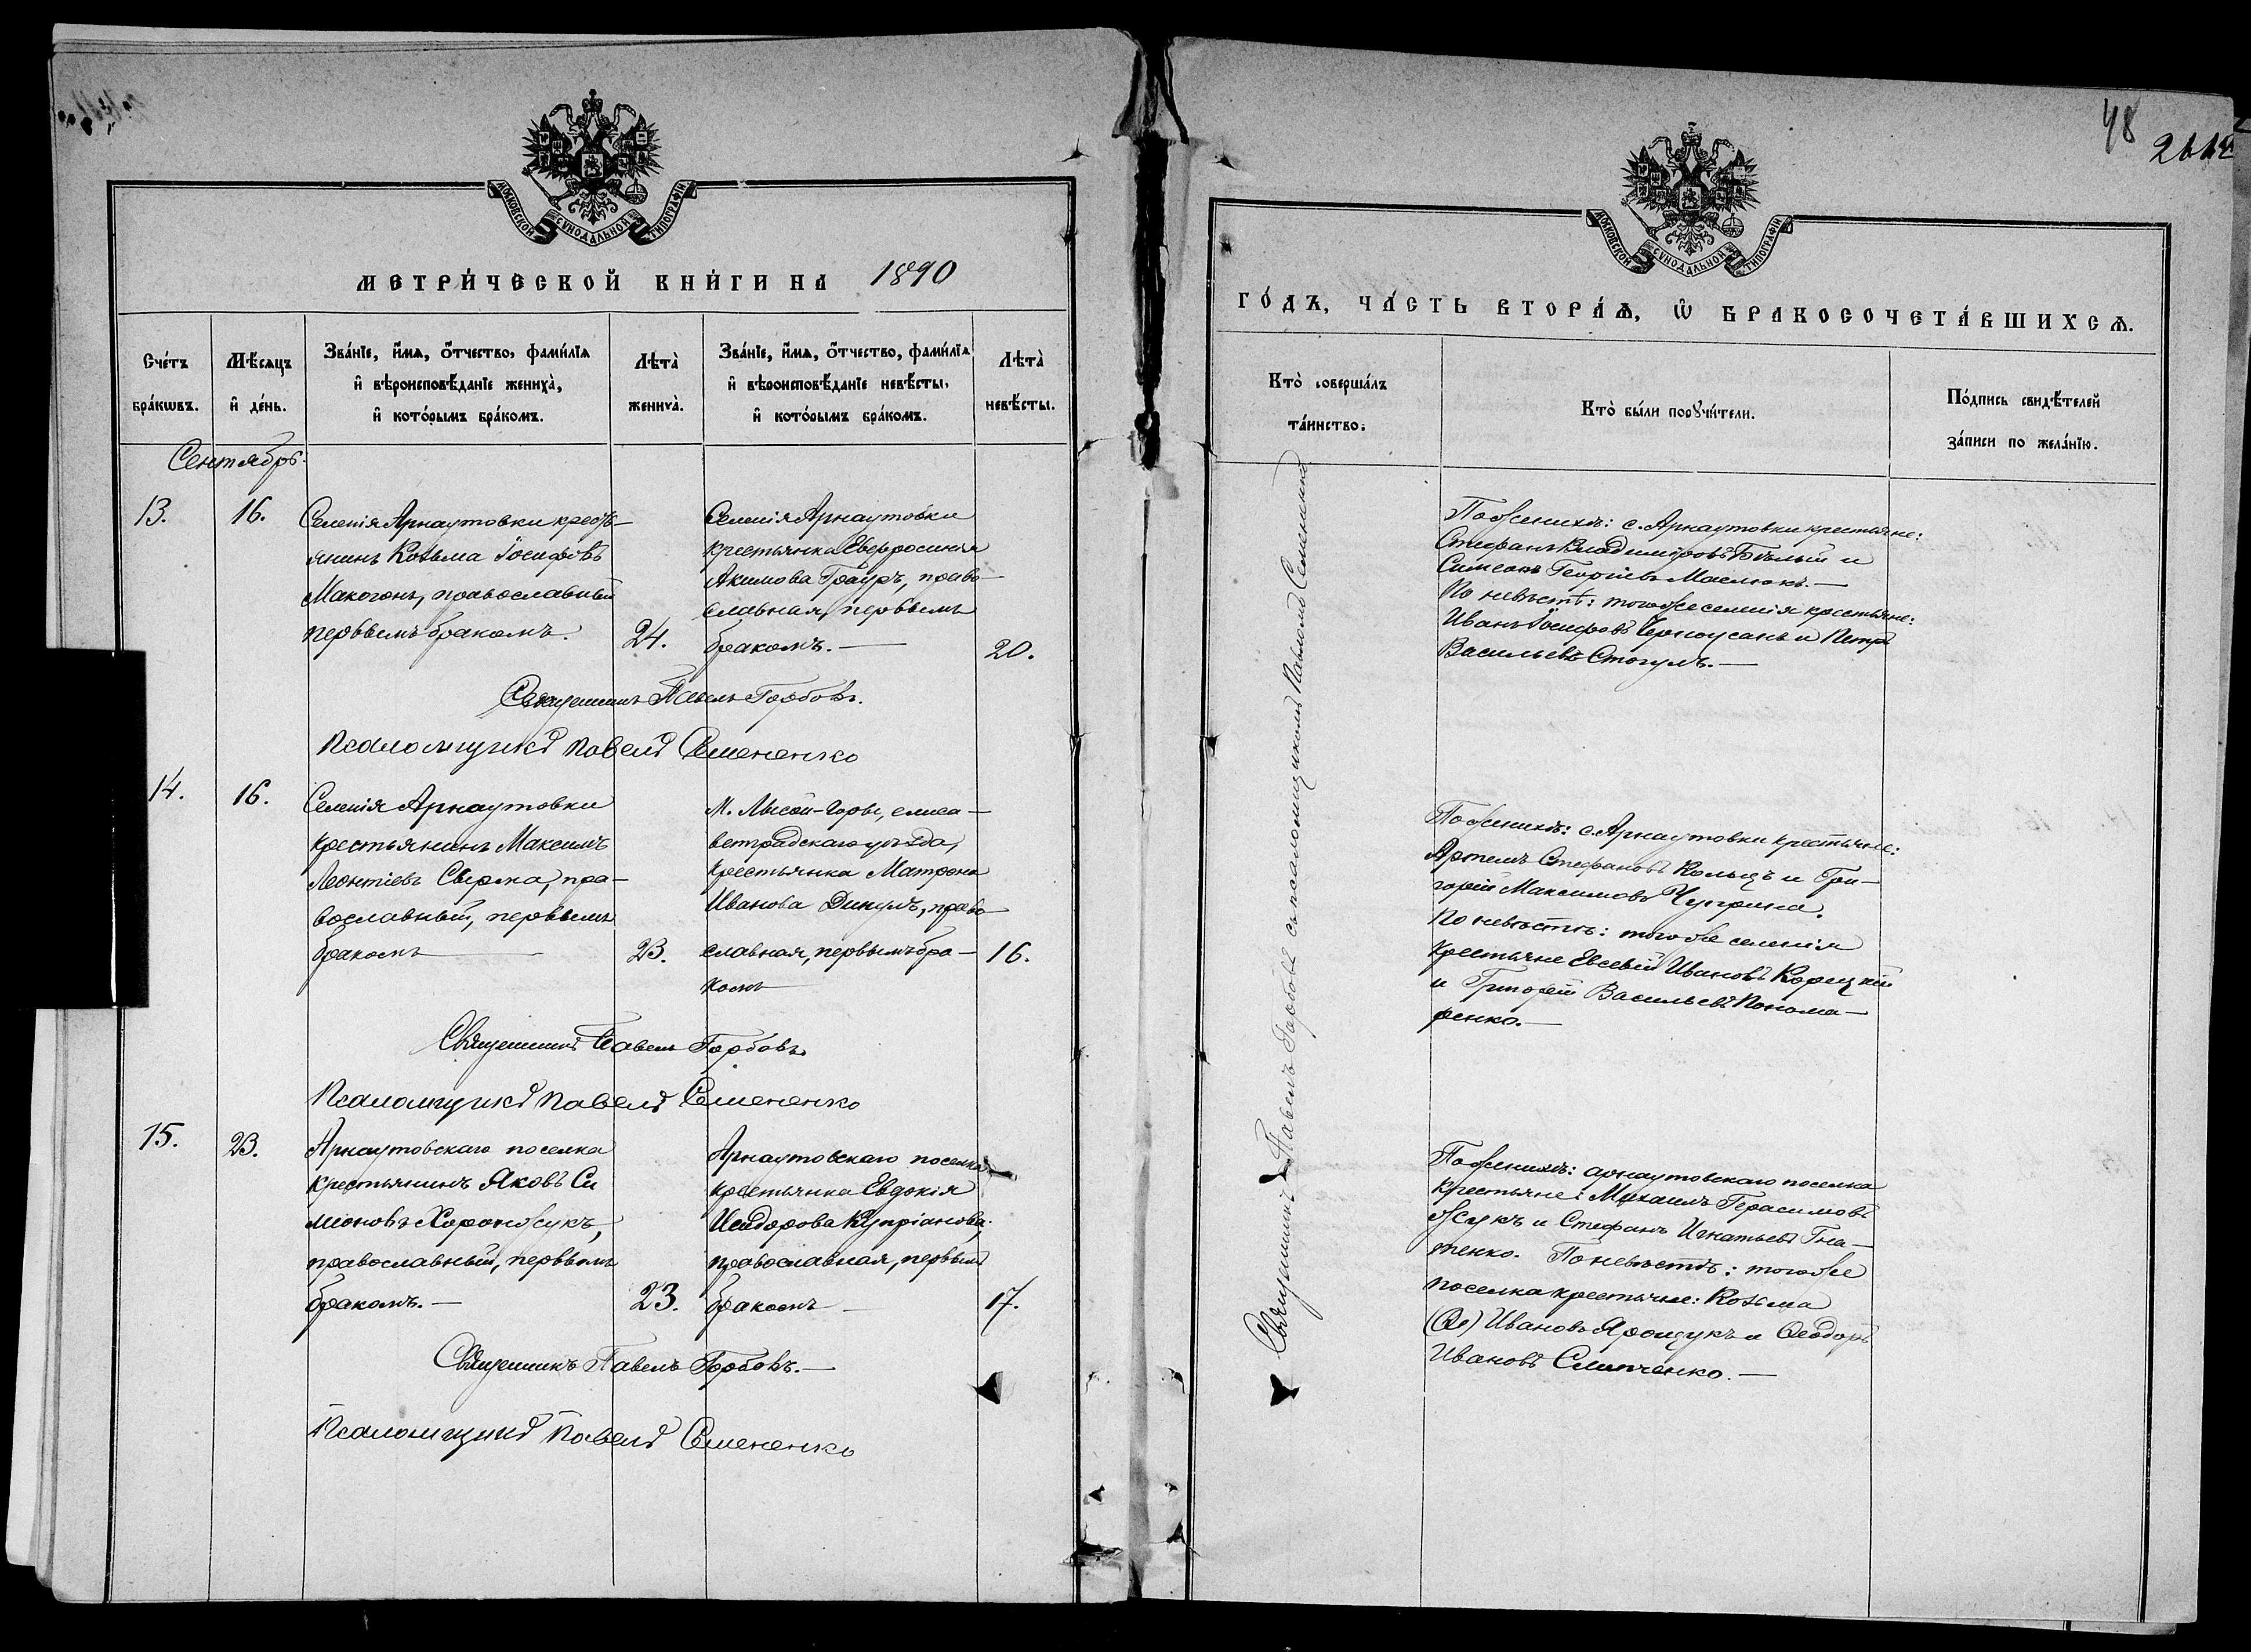 48
МОСКОВСКОЙ СѴНОДАЛЬНОЙ ТИПОГРАФІИ
МЕТРИ́ЧЕСКОЙ КНИ́ГИ НА 1890
Сче́тъ бра́кѡвъ.
Мѣ́сяцъ и҆ де́нь.
Зва́нїе, и҆́мѧ, о҆́тчество, фами́лїѧ
и҆ вѣроисповѣ́данїе жениха̀,
и҆ кото́рымъ бра́комъ.
Лѣта̀ жениха̀.
Зва́нїе, и҆́мѧ, о҆́тчество, фами́лїѧ
и҆ вѣроисповѣ́данїе невѣ́сты,
и҆ кото́рымъ бра́комъ.
Лѣта̀ невѣ́сты.
Сентябрь.
13.
16.
Селенія Арнаутовки крестъ-
янинъ Козьма Іосифовъ
Макогонъ, православный
первымъ бракомъ.
24.
Селенія Арнаутовки
крестьянка Евфросинія
Акимова Грауръ, право-
славная, первымъ
бракомъ. —
20.
Священникъ Павелъ Горбовъ.
Псаломщикъ Павелъ Семененко
14.
16.
Селенія Арнаутовки
крестьянинъ Максимъ
Леонтіевъ Свирка, пра-
вославный, первымъ
бракомъ —
23.
М. Лысой-Горы, елиса-
ветградскаго уѣзда,
крестьянка Матрона
Иванова Дикулъ, право-
славная, первымъ бра-
комъ
16.
Священникъ Павелъ Горбовъ.
Псаломщикъ Павелъ Семененко
15.
23.
Арнаутовскаго поселка
крестьянинъ Яковъ Си
міоновъ Хоронжукъ,
православный, первымъ
бракомъ. —
23.
Арнаутовскаго поселка
крестьянка Евдокія
Исидорова Купріанова,
православная, первымъ
бракомъ —
17.
Священникъ Павелъ Горбовъ. —
Псаломщикъ Павелъ Семененко
МОСКОВСКОЙ СѴНОДАЛЬНОЙ ТИПОГРАФІИ
ГО́ДЪ, ЧА́СТЬ ВТОРА́Ѧ, Ѡ҆ БРАКОСОЧЕТА́ВШИХСѦ.
Кто̀ соверша́лъ
та́инство.
Кто̀ бы́ли порꙋчи́тели.
По́дпись свидѣ́телей
за́писи по жела́нїю.
Священникъ Павелъ Горбовъ съ псаломщикомъ Павломъ Семененко
По женихѣ: с. Арнаутовки крестьяне:
Стефанъ Владиміровъ Бѣлый и
Симеонъ Георгіевъ Маслюкъ. —
По невѣстѣ: того же селенія крестьяне:
Иванъ Іосифовъ Черноусанъ и Петръ
Васильевъ Стогулъ. —
По женихѣ: с. Арнаутовки крестьяне:
Артемъ Стефановъ Кольцъ и Гри-
горій Максимовъ Чуприна.
По невѣстѣ: того же селенія
крестьяне Евсевій Ивановъ Корецкій
и Григорій Васильевъ Понома-
ренко. —
По женихѣ: арнаутовскаго поселка
крестьяне: Михаилъ Герасимовъ
Жукъ и Стефанъ Игнатьевъ Гна-
тенко. По невѣстѣ: того же
поселка крестьяне: Козьма
Ивановъ Ярощукъ и Ѳеодоръ
Ивановъ Слипченко. —